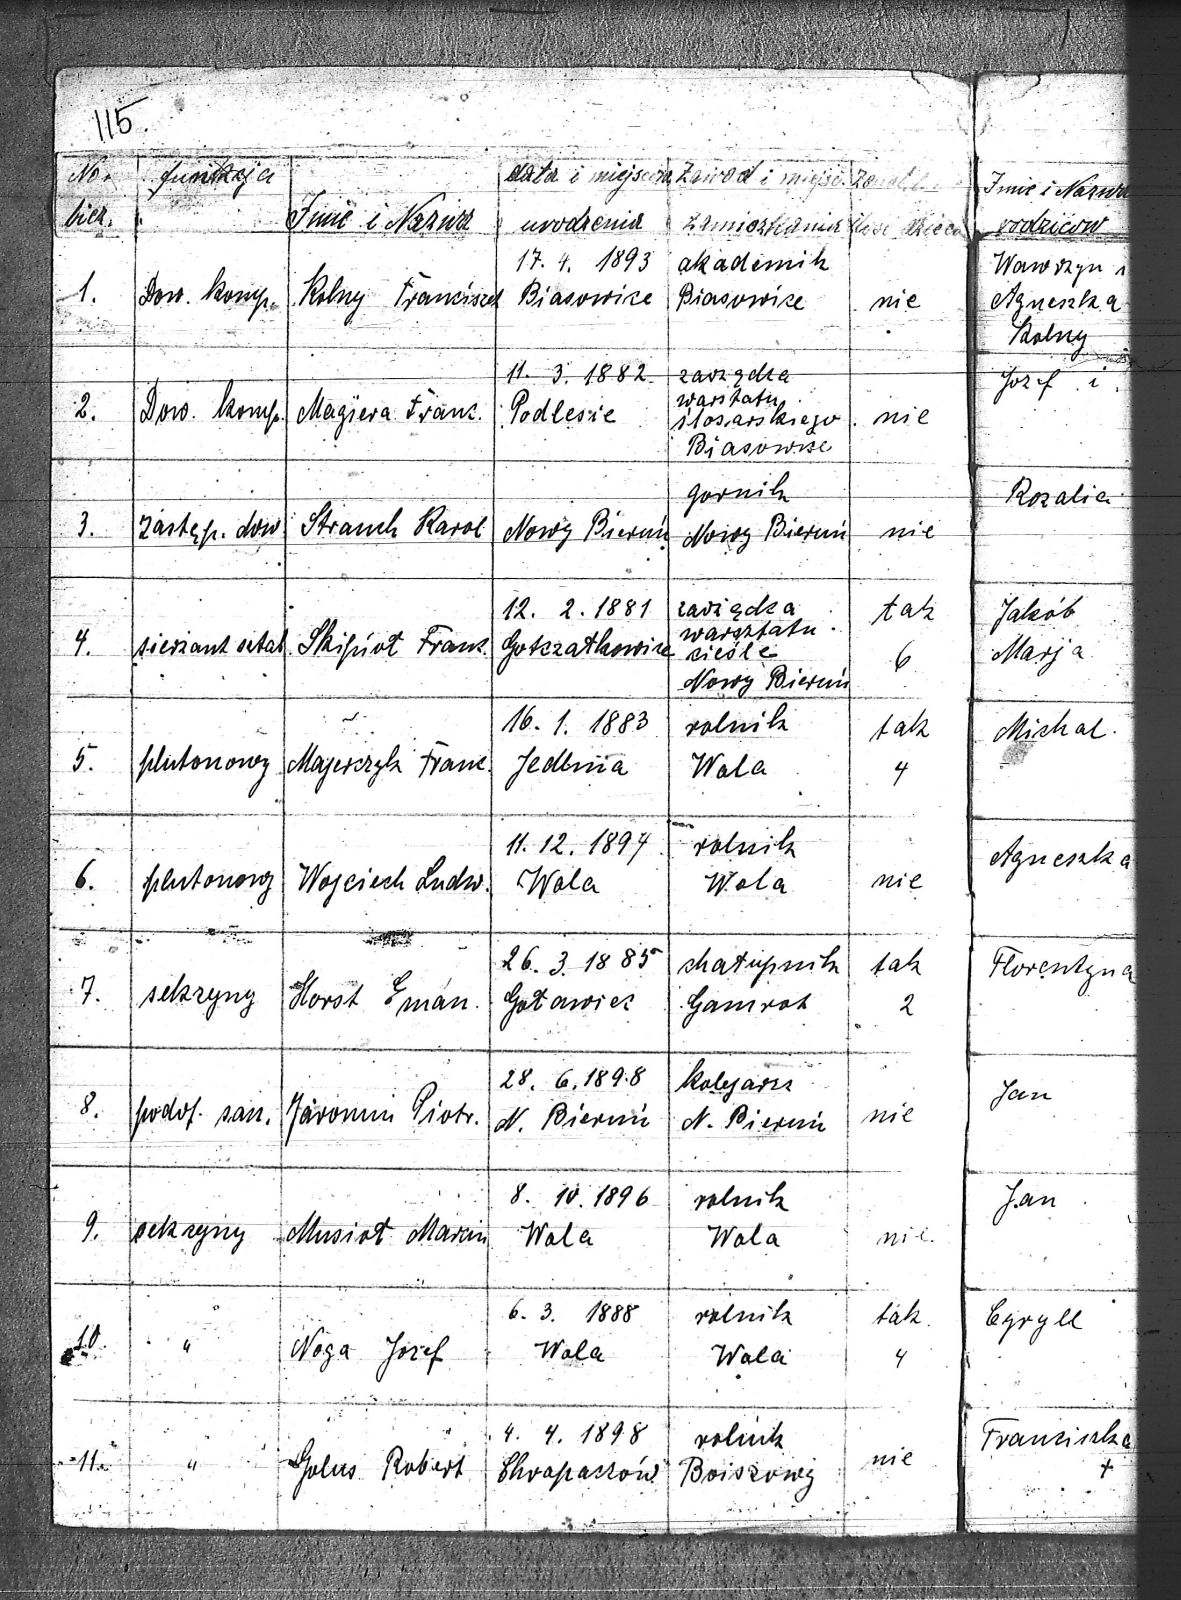 115.
No. funkcja data i miejsce Zawód i miejsc Imię i Nazwa
bież. Imię i Nazwa urodzenia zamieszkania ilość dzieci rodziców
17. 4. 1893 akademik Wawrzyn i
1. Dow. komp. Kolny Franciszek Biasowice Biasowice nie Agneszka
Kolny
11. 3. 1882 zarządca Jozef i
warstatu
2. Dow. komp. Magiera Franc. Podlesie slosarskiego nie
Biasowice
gornik Rozalia
3. zastęp. dow Strauch Karol Nowy Bieruń Nowy Bieruń nie
12. 2. 1881 zarządca tak Jakób
warsztatu
4. sierzant Skipioł Franc. Gołczałkowice cieśle 6 Marja
Nowy Bieruń
16. 1. 1883 rolnik tak Michał
5. plutonowy Majerczyk Franc. Jedlina Wola 4
11. 12. 1894 rolnik Agneszka
6. plutonowy Wojciech Ludw. Wola Wola nie
26. 3. 1885 chałupnik tak Florentyna
7. sekcyjny Horst Eman. Goławiec Gamrot 2
28. 6. 1898 kolejarz Jan
8. podof. san. Jaromin Piotr. N. Bieruń N. Bieruń nie
8. 10. 1896 rolnik Jan
9. sekcyjny Musioł Marcin Wola Wola nie.
6. 3. 1888 rolnik tak. Cyryll
10. " Noga Jozef Wola Wola 4
4. 4. 1898 rolnik Franciszka
11. " Golus Robert Chropaczów Boiszowy nie +